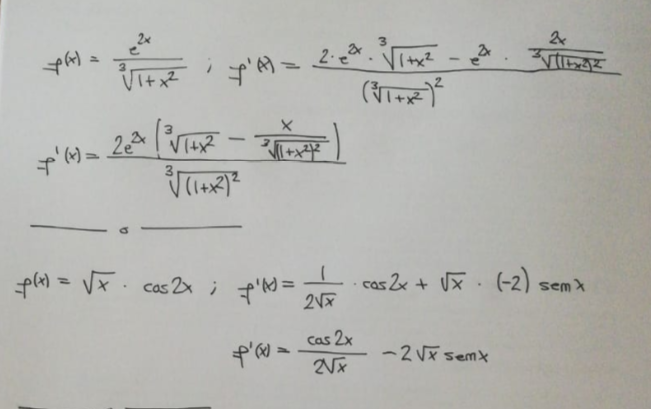 f(x) = e^{2x} / ∛(1+x²) ; f'(x) = (2·e^{2x} · ∛(1+x²) − e^{2x} · 2x / (3∛((1+x²)²))) / (∛(1+x²))²
f'(x) = 2e^{2x} (∛(1+x²) − x / (3∛((1+x²)²))) / ∛((1+x²)²)
f(x) = √x · cos2x ; f'(x) = 1/(2√x) · cos2x + √x · (-2) senx
f'(x) = cos2x / (2√x) − 2√x senx